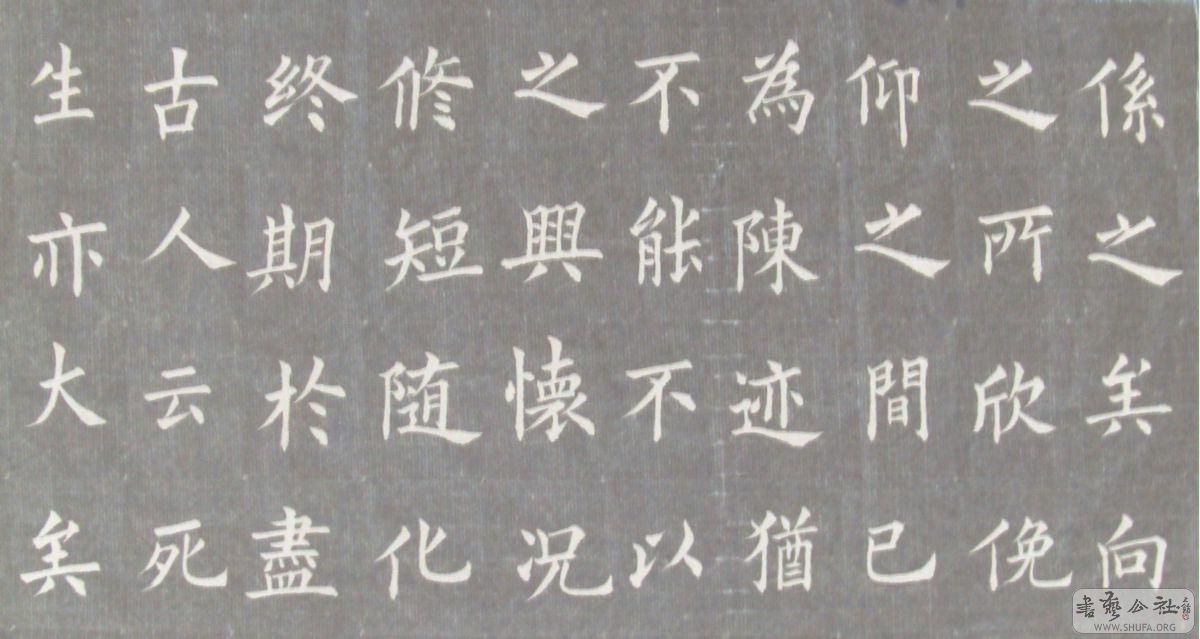 係之矣向
之所欣俛
仰之間已
為陳迹猶
不能不以
之興懷况
修短随化
終期於盡
古人云死
生亦大矣
書藝公社
WWW.SHUFA.ORG